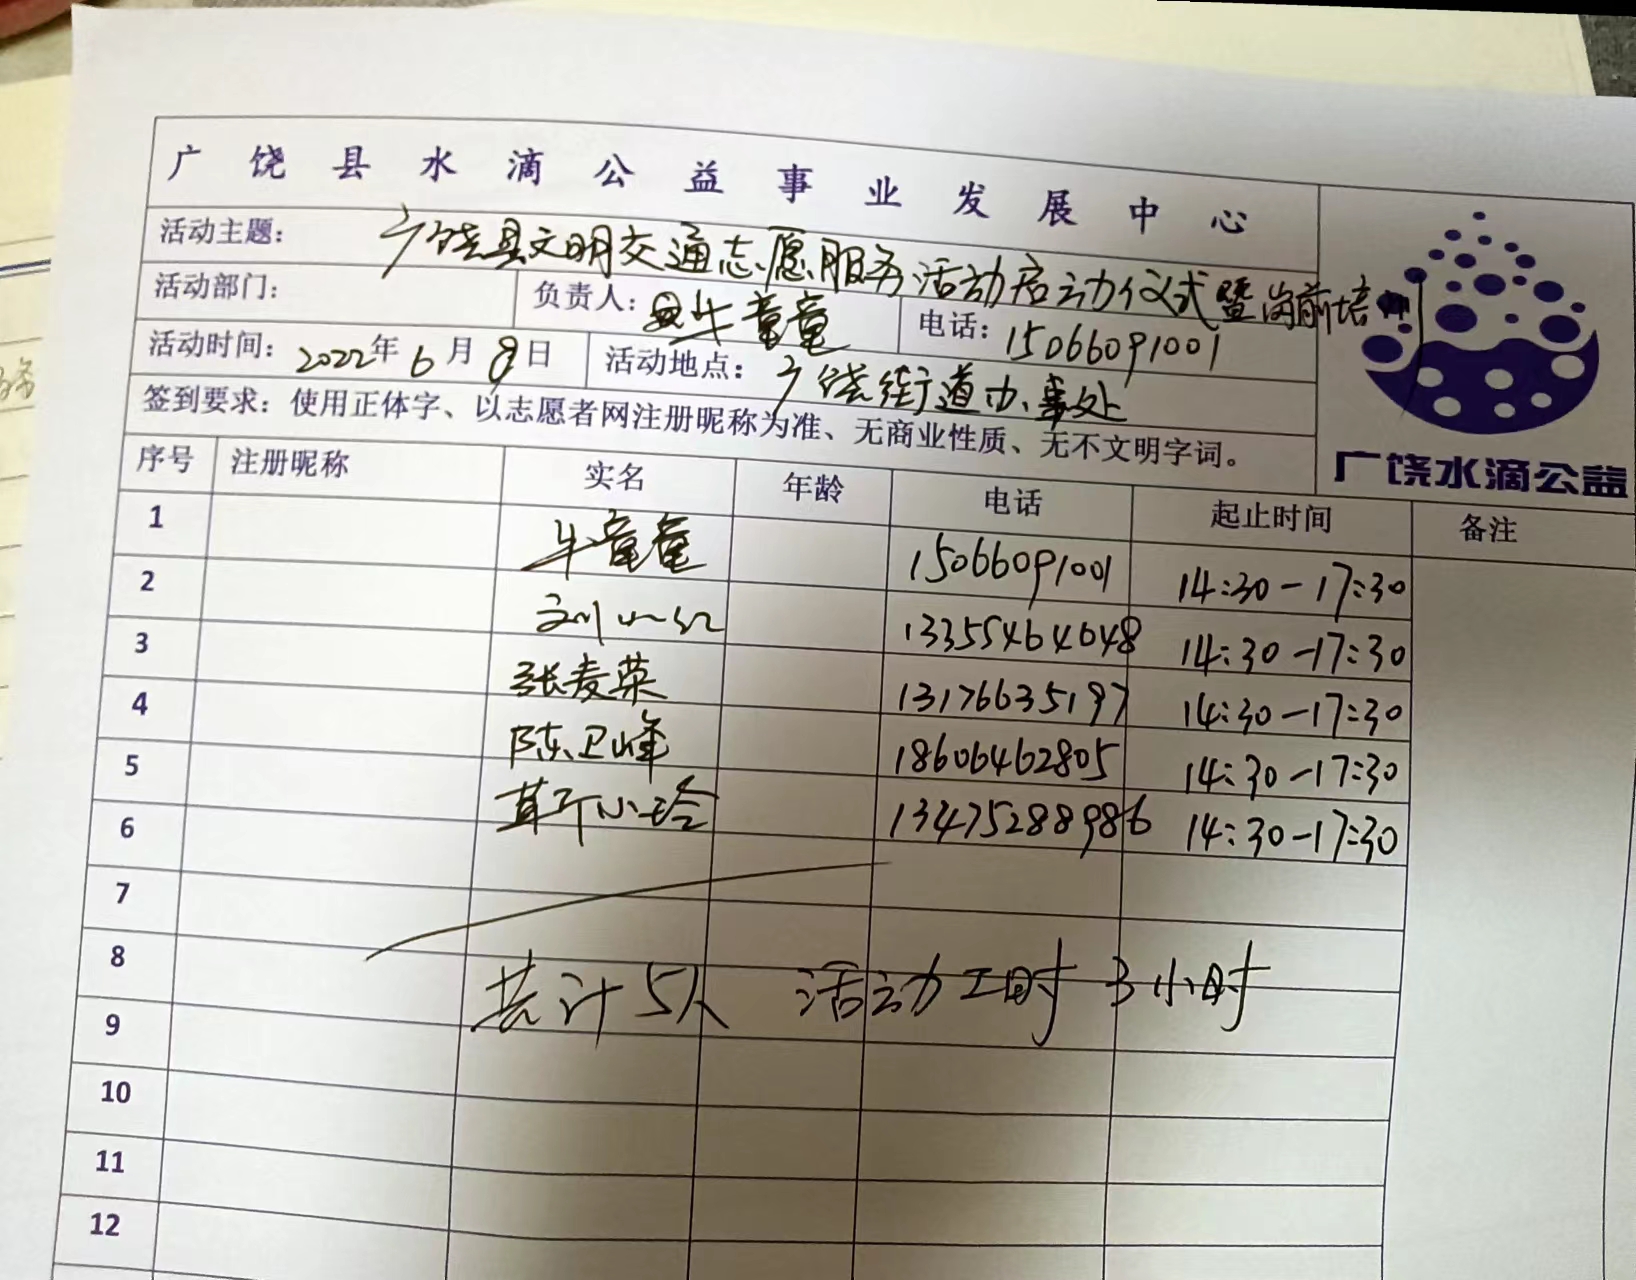 广饶县水滴公益事业发展中心
活动主题： 广饶县文明交通志愿服务活动启动仪式暨岗前培训
活动部门： 负责人： 牛童童 电话： 15066091001
活动时间： 2022年6月8日 活动地点： 广饶街道办事处
签到要求：使用正体字、以志愿者网注册昵称为准、无商业性质、无不文明字词。
广饶水滴公益
序号 注册昵称 实名 年龄 电话 起止时间 备注
1 牛童童 15066091001 14:30-17:30
2 刘小红 13355464648 14:30-17:30
3 张麦荣 13176635197 14:30-17:30
4 陈卫峰 18606462805 14:30-17:30
5 小玲 13475288986 14:30-17:30
6
7
8 共计5人 活动工时 3小时
9
10
11
12